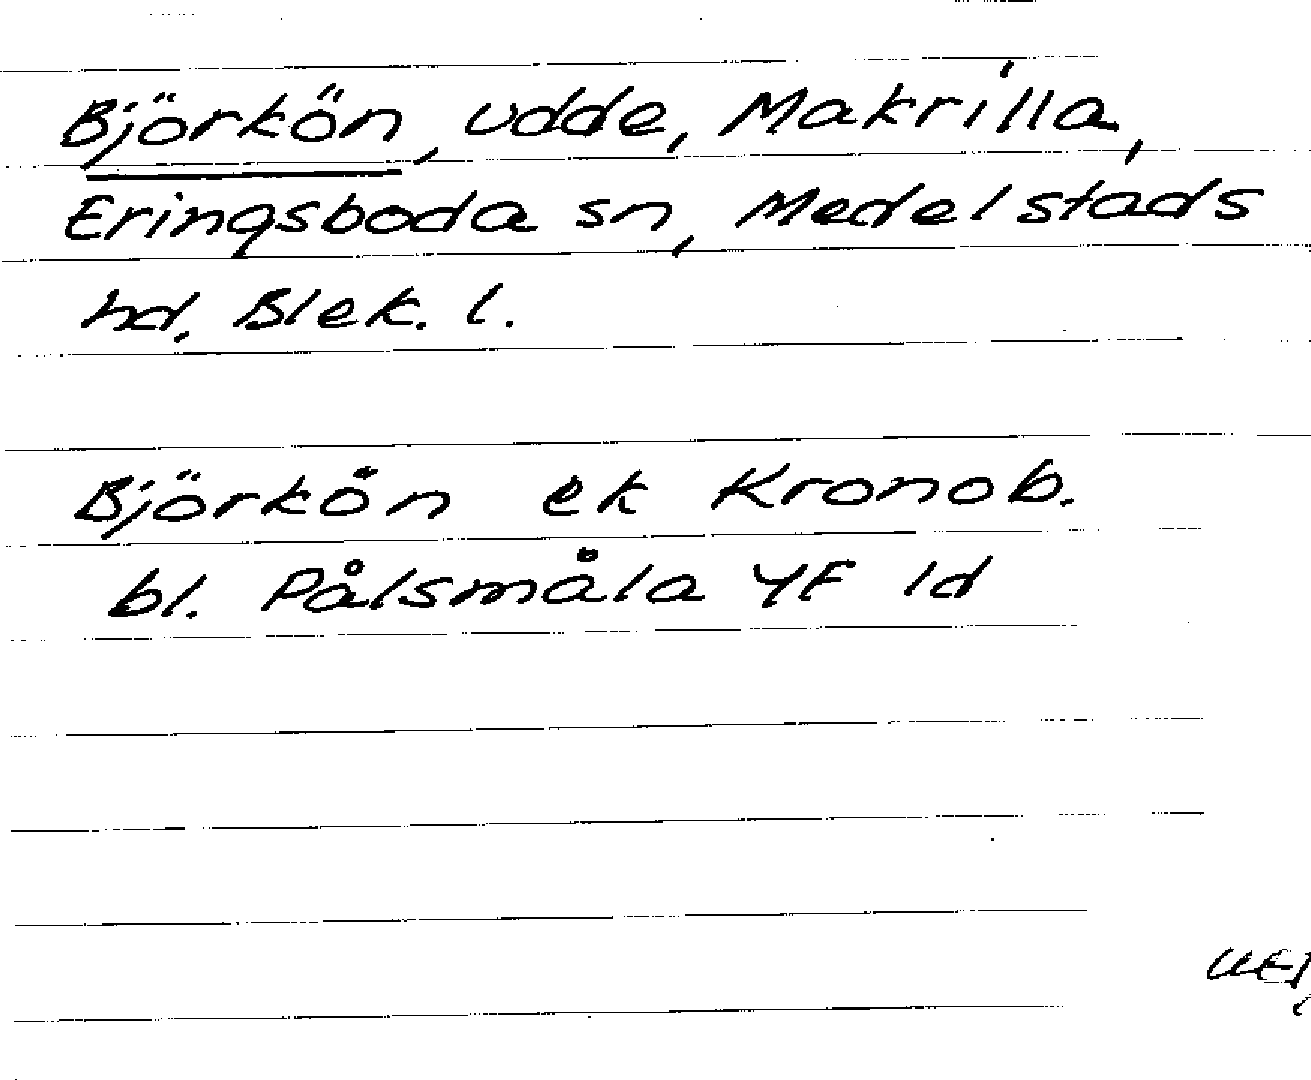 Björkön, udde, Makrilla,
Eringsboda sn, Medelstads
hd, Blek. l.
Björkön ek Kronob.
bl. Pålsmåla 4F 1d